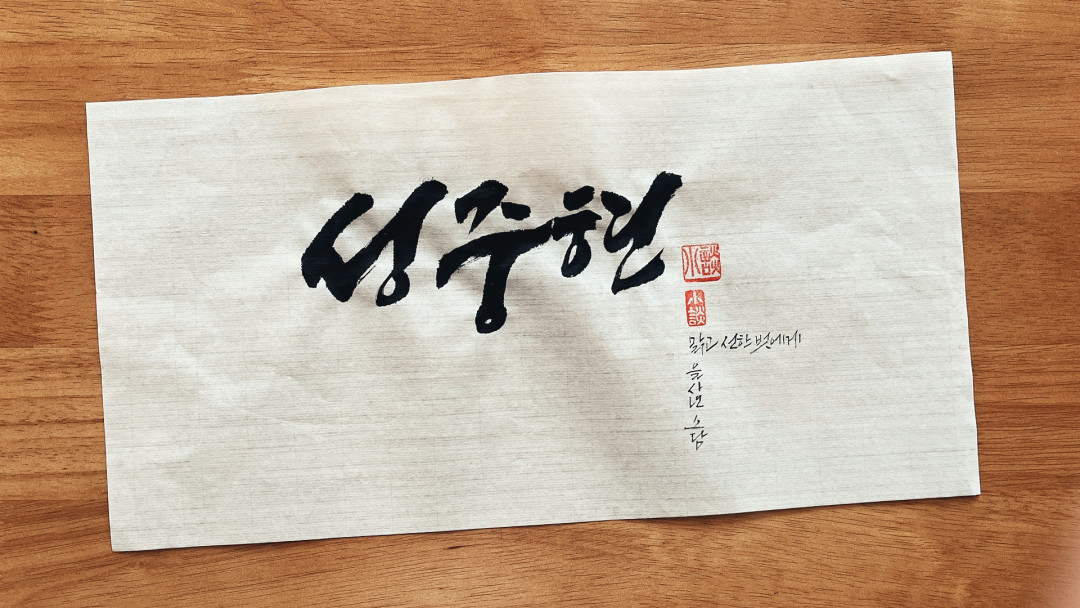 성주현
小談
小談
맑고 선한 벗에게
을사년
소담